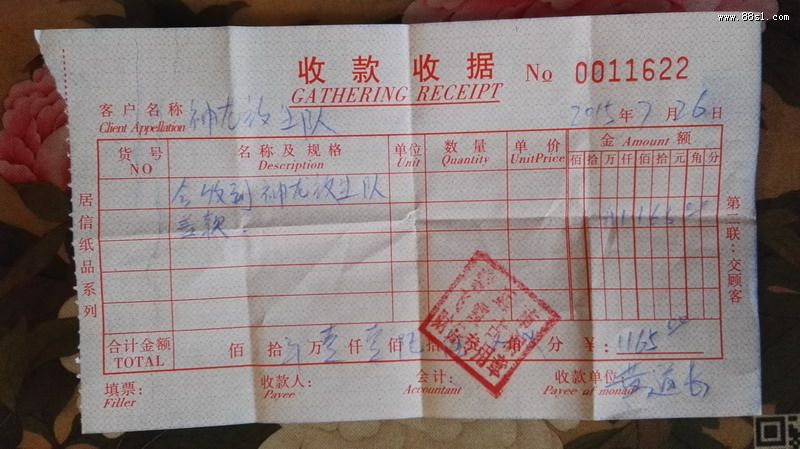 www.88s1.com
收款收据 No 0011622
GATHERING RECEIPT
客户名称 神龙放生队 2015年7月26日
Client Appellation
货号 名称及规格 单位 数量 单价 金 Amount 额
NO Description Unit Quantity UnitPrice 佰 拾 万 仟 佰 拾 元 角 分
今收到神龙放生队
善款.
居信纸品系列
第二联:交顾客
合计金额 佰 拾 万 壹 仟 壹 佰 拾 角 分 ¥: 1165
TOTAL
填票: 收款人: 会计: 收款单位 黄道长
Filler Payee Accountant Payee of monad